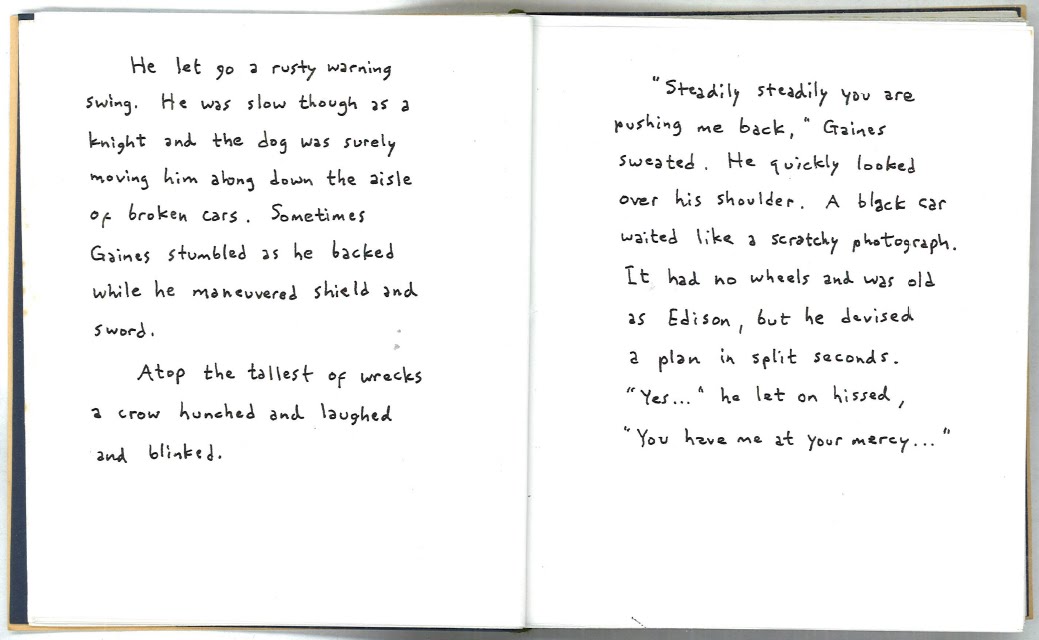 He let go a rusty warning
swing. He was slow though as a
knight and the dog was surely
moving him along down the aisle
of broken cars. Sometimes
Gaines stumbled as he backed
while he maneuvered shield and
sword.
Atop the tallest of wrecks
a crow hunched and laughed
and blinked.
"Steadily steadily you are
pushing me back," Gaines
sweated. He quickly looked
over his shoulder. A black car
waited like a scratchy photograph.
It had no wheels and was old
as Edison, but he devised
a plan in split seconds.
"Yes..." he let on hissed,
"You have me at your mercy..."